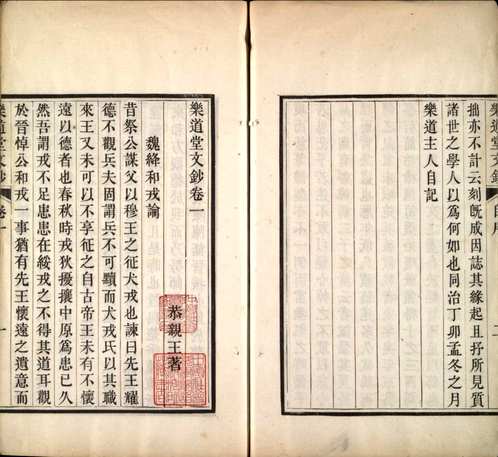 拙亦不計云刻既成因誌其緣起且抒所見質
諸世之學人以為何如也同治丁卯孟冬之月
樂道主人自記
樂道堂文鈔卷一
恭親王著
魏絳和戎論
昔祭公謀父以穆王之征犬戎也諫曰先王耀
德不觀兵夫固謂兵不可黷而犬戎氏以其職
來王又未可以不享征之自古帝王未有不懷
遠以德者也春秋時戎狄擾攘中原為患已久
然吾謂戎不足患患在綏戎之不得其道耳觀
於晉悼公和戎一事猶有先王懷遠之遺意而
樂道堂文鈔
卷一
一